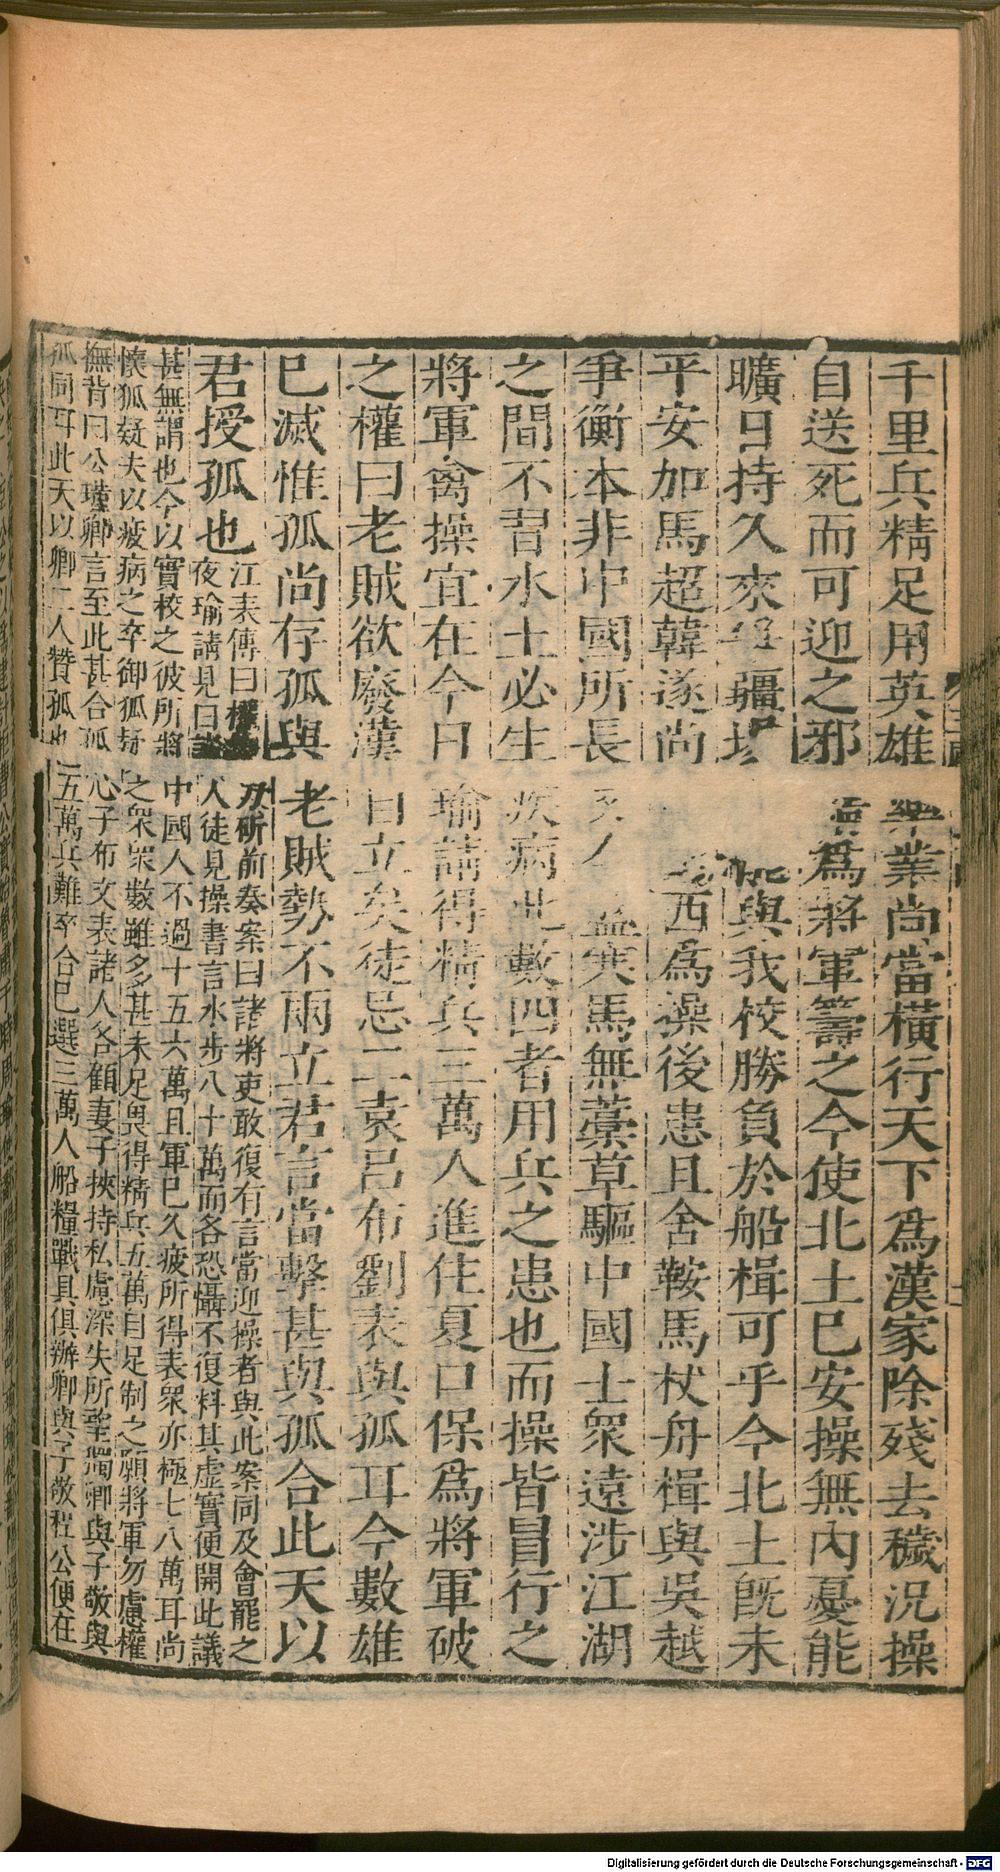 千里兵精足用英雄樂業尚當橫行天下爲漢家除殘去穢況操
自送死而可迎之邪請爲將軍籌之今使北土已安操無內憂能
曠日持久來爭疆埸能與我校勝負於船楫可乎今北土旣未
平安加馬超韓遂尚西爲操後患且舍鞍馬杖舟楫與吳越
爭衡本非中國所長又今盛寒馬無藁草驅中國士衆遠涉江湖
之間不習水土必生疾病此數四者用兵之患也而操皆冒行之
將軍禽操宜在今日瑜請得精兵三萬人進住夏口保爲將軍破
之權曰老賊欲廢漢自立矣徒忌二袁呂布劉表與孤耳今數雄
已滅惟孤尚存孤與老賊勢不兩立君言當擊甚與孤合此天以
君授孤也
江表傳曰權刀斫前奏案曰諸將吏敢復有言當迎操者與此案同及會罷之
夜瑜請見曰諸人徒見操書言水步八十萬而各恐懾不復料其虛實便開此議
甚無謂也今以實校之彼所將中國人不過十五六萬且軍已久疲所得表衆亦極七八萬耳尚
懷狐疑夫以疲病之卒御狐疑之衆衆數雖多甚未足畏得精兵五萬自足制之願將軍勿慮權
撫背曰公瑾卿言至此甚合孤心子布文表諸人各顧妻子挾持私慮深失所望獨卿與子敬與
孤同耳此天以卿二人贊孤也五萬兵難卒合已選三萬人船糧戰具俱辦卿與子敬程公便在
Digitalisierung gefördert durch die Deutsche Forschungsgemeinschaft - DFG